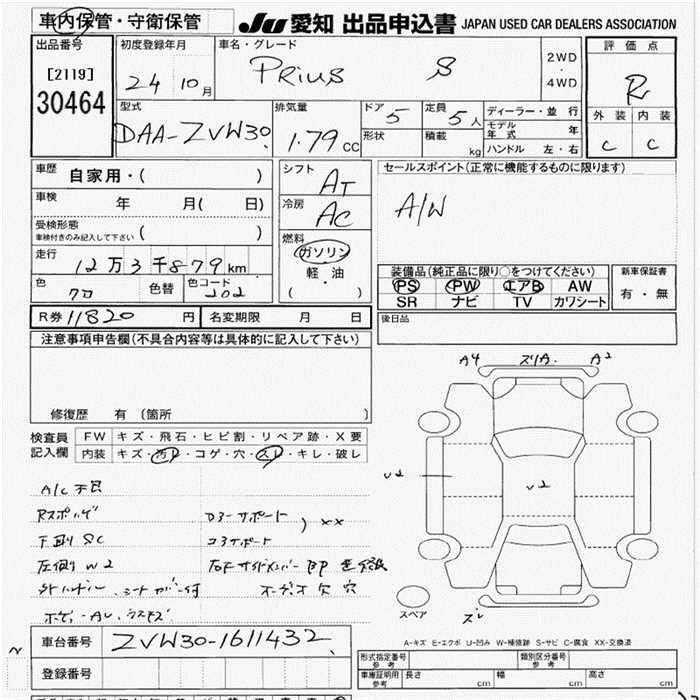 車内保管・守衛保管 JU 愛知 出品申込書 JAPAN USED CAR DEALERS ASSOCIATION
出品番号 [2119] 30464
初度登録年月 24 10月
車名・グレード PRIUS S
2WD・4WD
評価点 R
外装 内装
C C
型式 DAA-ZVW30
排気量 1.79cc
ドア 5 定員 5人
形状 積載 kg
ディーラー・並行
モデル年式 年
ハンドル 左・右
車歴 自家用・( )
車検 年 月( 日)
受検形態 ( )
車検付きのみ記入して下さい
走行 12万3千879km
色 クロ 色替 色コード 202
シフト AT
冷房 AC
燃料 ガソリン
軽・油
( )
セールスポイント(正常に機能するものに限ります)
A/W
装備品(純正品に限り○をつけてください)
PS PW エアB AW
SR ナビ TV カワシート
新車保証書
有・無
R券 11820円 名変期限 月 日
後日品
注意事項申告欄(不具合内容等は具体的に記入して下さい)
修復歴 有(箇所 )
検査員記入欄
FW キズ・飛石・ヒビ割・リペア跡・X要
内装 キズ・汚レ・コゲ・穴・スレ・キレ・破レ
A/C不良
下廻りSC
コアサポート
XX
左側リW2
オーディオ欠 穴
A4 ズリA. A2
U2
U2
スペア ズレ
A-キズ E-エクボ U-凹み W-補修跡 S-サビ C-腐食 XX-交換済
車台番号 ZVW30-1611432
登録番号
形式指定番号 参考 類別区分番号 参考
車庫証明用 参考 長さ cm 幅 cm 高さ cm